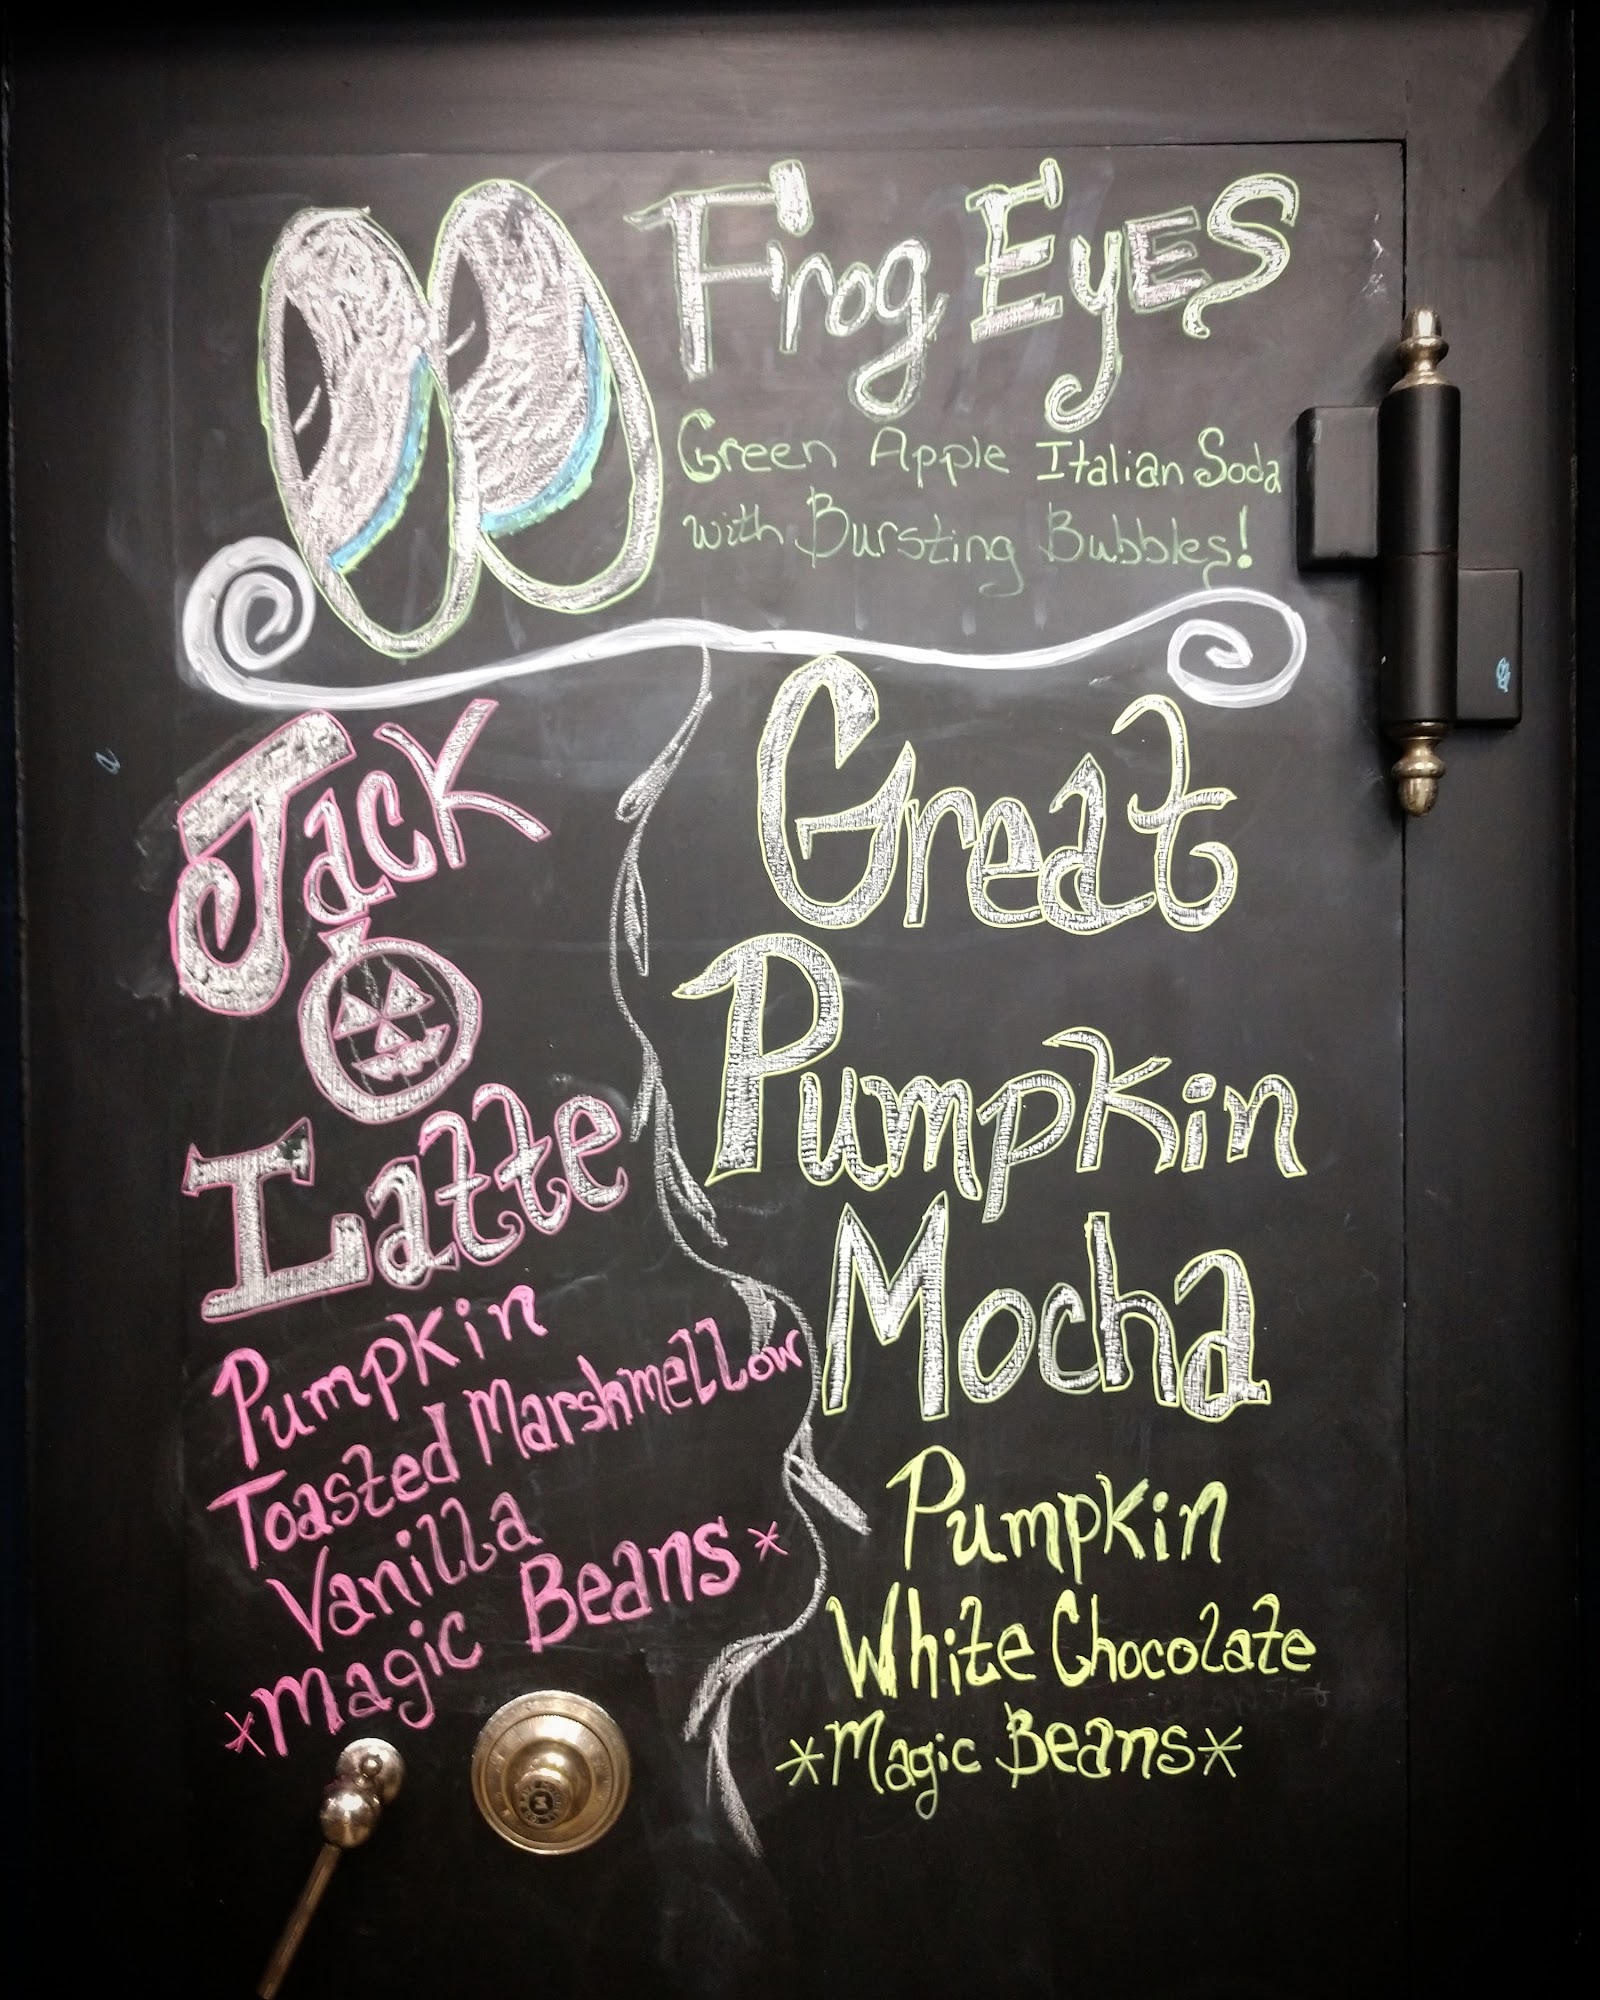 Frog Eyes
Green Apple Italian Soda
with Bursting Bubbles!
Jack
O
Latte
Pumpkin
Toasted Marshmellow
Vanilla
*Magic Beans*
Great
Pumpkin
Mocha
Pumpkin
White Chocolate
*Magic Beans*